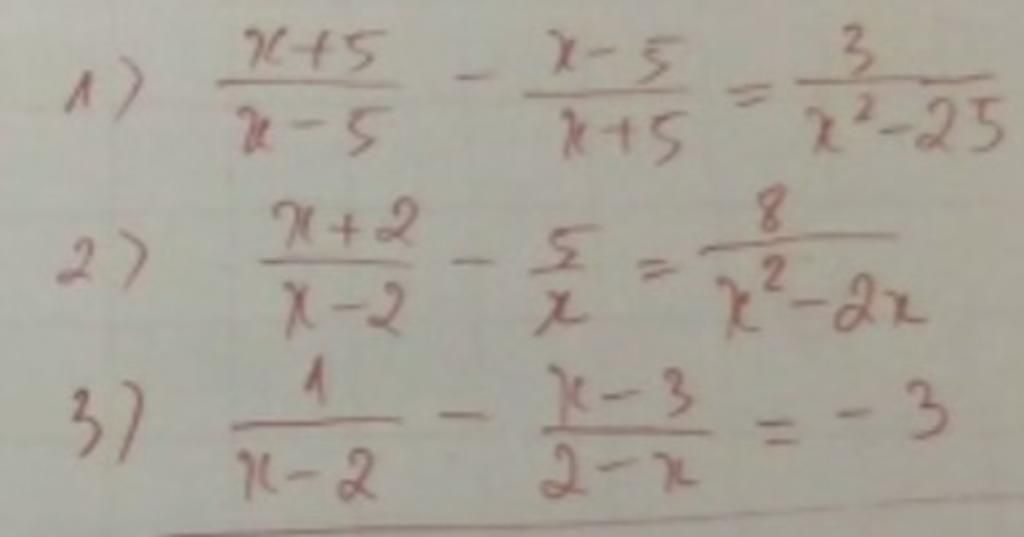 1) \frac{x+5}{x-5} - \frac{x-5}{x+5} = \frac{3}{x^2-25}
2) \frac{x+2}{x-2} - \frac{5}{x} = \frac{8}{x^2-2x}
3) \frac{1}{x-2} - \frac{x-3}{2-x} = -3